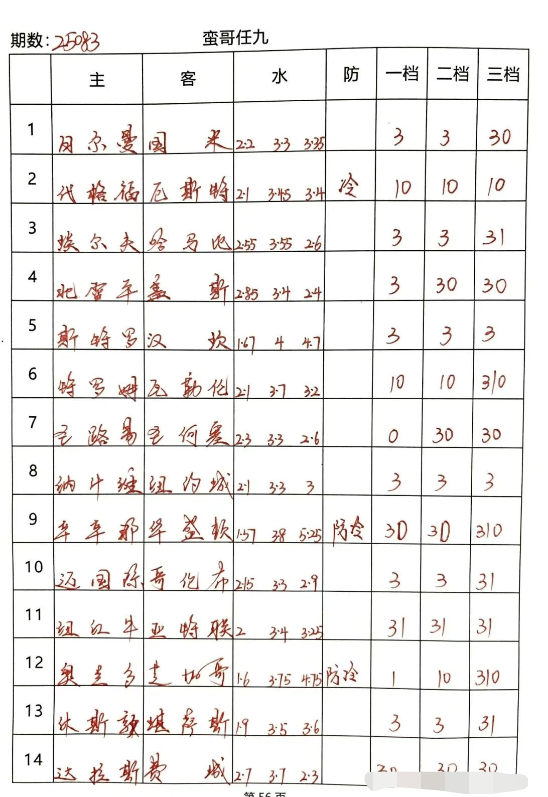 期数:25083 蛮哥任九
主 客 水 防 一档 二档 三档
1 日尔曼 国米 2·2 3·3 3·35 3 3 30
2 代格福 瓦斯特 2·1 3·45 3·4 冷 10 10 10
3 埃尔夫 哈马比 2·55 3·55 2·6 3 3 31
4 北雪平 盖斯 2·85 3·4 2·4 3 30 30
5 斯特罗 汉坎 1·67 4 4·7 3 3 3
6 特罗姆 瓦勒伦 2·1 3·7 3·2 10 10 310
7 圣路易 圣何塞 2·3 3·3 2·6 0 30 30
8 纳什维 纽约城 2·1 3·3 3 3 3 3
9 辛辛那 华盛顿 1·57 3·8 5·25 防冷 30 30 310
10 迈国际 哥伦布 2·15 3·3 2·9 3 3 31
11 纽红牛 亚特联 2 3·4 3·25 31 31 31
12 奥兰多 芝加哥 1·6 3·75 4·75 防冷 1 10 310
13 休斯顿 堪萨斯 1·9 3·5 3·6 3 3 31
14 达拉斯 费城 2·7 3·7 2·3 30 30 30
第 56 页